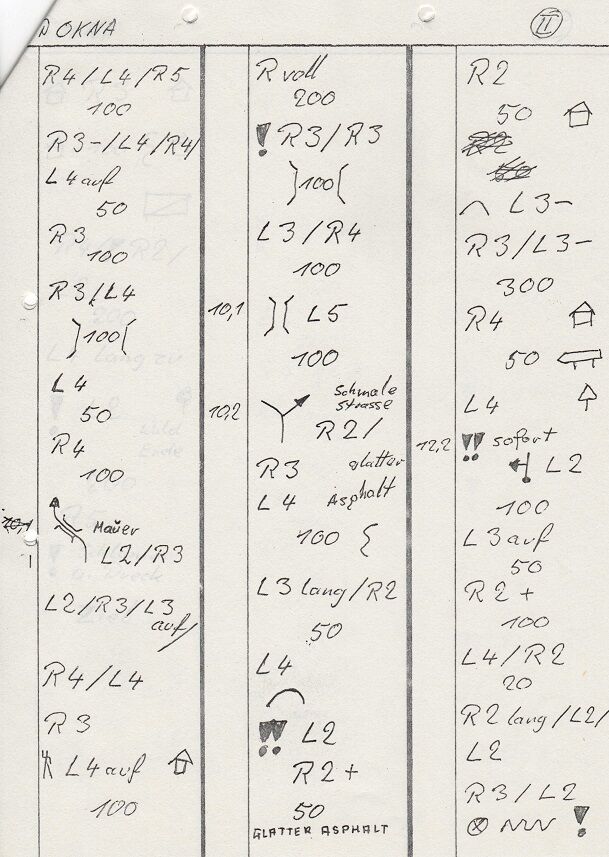 OKNA
II
R4/L4/R5
100
R3-/L4/R4/
L4 auf
50
R3
100
R3/L4
100
L4
50
R4
100
Mauer
L2/R3
L2/R3/L3
auf/
R4/L4
R3
L4 auf
100
R voll
200
! R3/R3
100
L3/R4
100
10,1
L5
100
10,2
Schmale
Strasse
R2/
R3 glatter
L4 Asphalt
100
L3 lang/R2
50
L4
!! L2
R2+
50
GLATTER ASPHALT
R2
50
L3-
R3/L3-
300
R4
50
L4
12,2
!! sofort
L2
100
L3 auf
50
R2+
100
L4/R2
20
R2 lang/L2/
L2
R3/L2
!